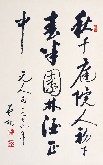 秋千庭院人初下
春半園林酒正
中
元人句